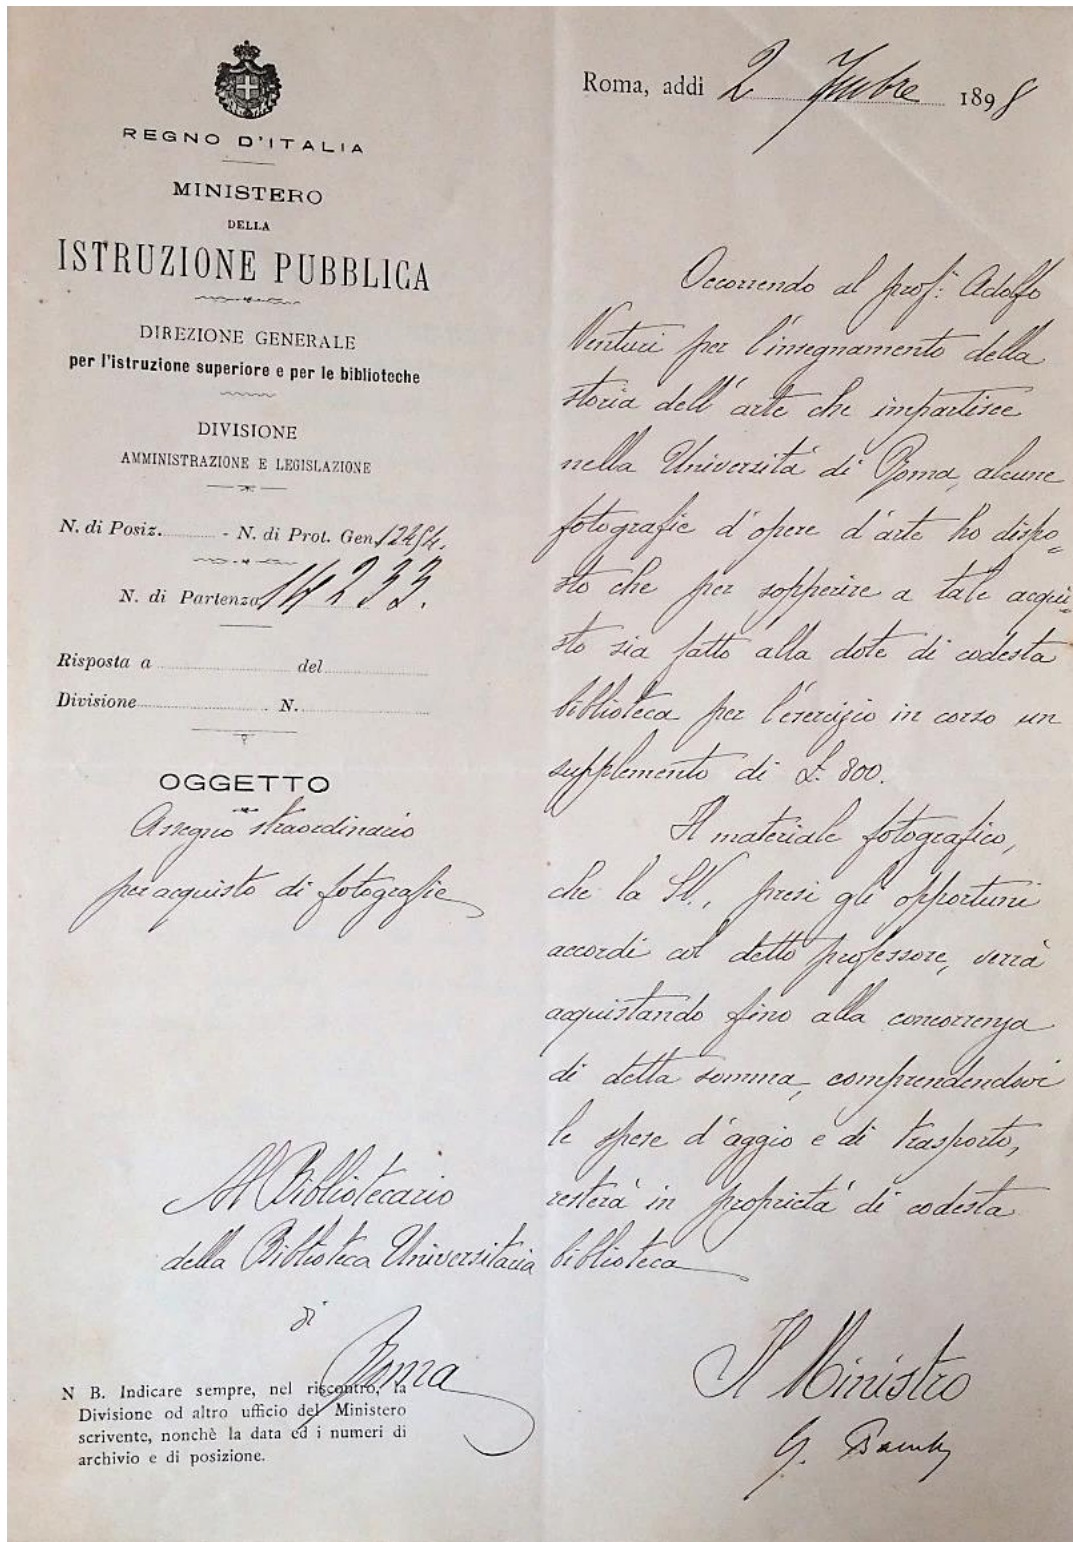 REGNO D'ITALIA
MINISTERO
DELLA
ISTRUZIONE PUBBLICA
DIREZIONE GENERALE
per l'istruzione superiore e per le biblioteche
DIVISIONE
AMMINISTRAZIONE E LEGISLAZIONE
N. di Posiz. - N. di Prot. Gen.
N. di Partenza 14233.
Risposta a del
Divisione N.
OGGETTO
Assegno straordinario
per acquisto di fotografie
Al Bibliotecario
della Biblioteca Universitaria
di
Roma
N B. Indicare sempre, nel riscontro, la
Divisione od altro ufficio del Ministero
scrivente, nonchè la data ed i numeri di
archivio e di posizione.
Roma, addì 2 1898
Occorrendo al prof: Adolfo
Venturi per l'insegnamento della
storia dell'arte che impartisce
nella Università di Roma, alcune
fotografie d'opere d'arte ho dispo=
sto che per sopperire a tale acqui=
sto sia fatto alla dote di codesta
biblioteca per l'esercizio in corso un
supplemento di £. 800.
Il materiale fotografico,
che la SV., presi gli opportuni
accordi col detto professore, verrà
acquistando fino alla concorrenza
di detta somma, comprendendovi
le spese d'aggio e di trasporto,
resterà in proprietà di codesta
biblioteca
Il Ministro
G.